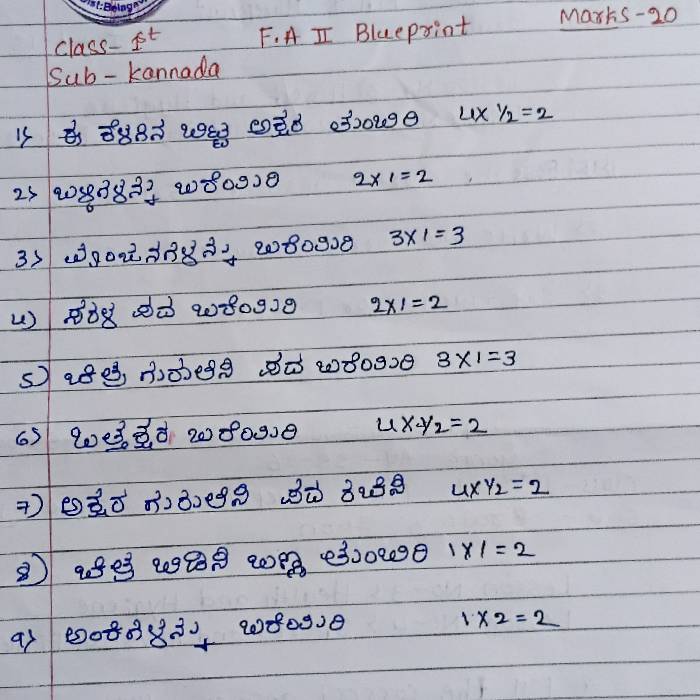 Dist:Belagavi
Marks-20
Class-1st F.A II Blueprint
Sub-Kannada
1) ಈ ಕೆಳಗಿನ ಬಿಟ್ಟ ಅಕ್ಷರ ತುಂಬಿರಿ 4x1/2=2
2) ಒಳ್ಳಗಳನ್ನು ಬರೆಯಿರಿ 2x1=2
3) ವ್ಯಂಜನಗಳನ್ನು ಬರೆಯಿರಿ 3x1=3
4) ಸರಳ ಪದ ಬರೆಯಿರಿ 2x1=2
5) ಚಿತ್ರ ಗುರುತಿಸಿ ಪದ ಬರೆಯಿರಿ 3x1=3
6) ಒತ್ತಕ್ಷರ ಬರೆಯಿರಿ 4x1/2=2
7) ಅಕ್ಷರ ಗುರುತಿಸಿ ಪದ ರಚಿಸಿ 4x1/2=2
8) ಚಿತ್ರ ಬಿಡಿಸಿ ಬಣ್ಣ ತುಂಬಿರಿ 1x1=2
9) ಅಂಕಿಗಳನ್ನು ಬರೆಯಿರಿ 1x2=2